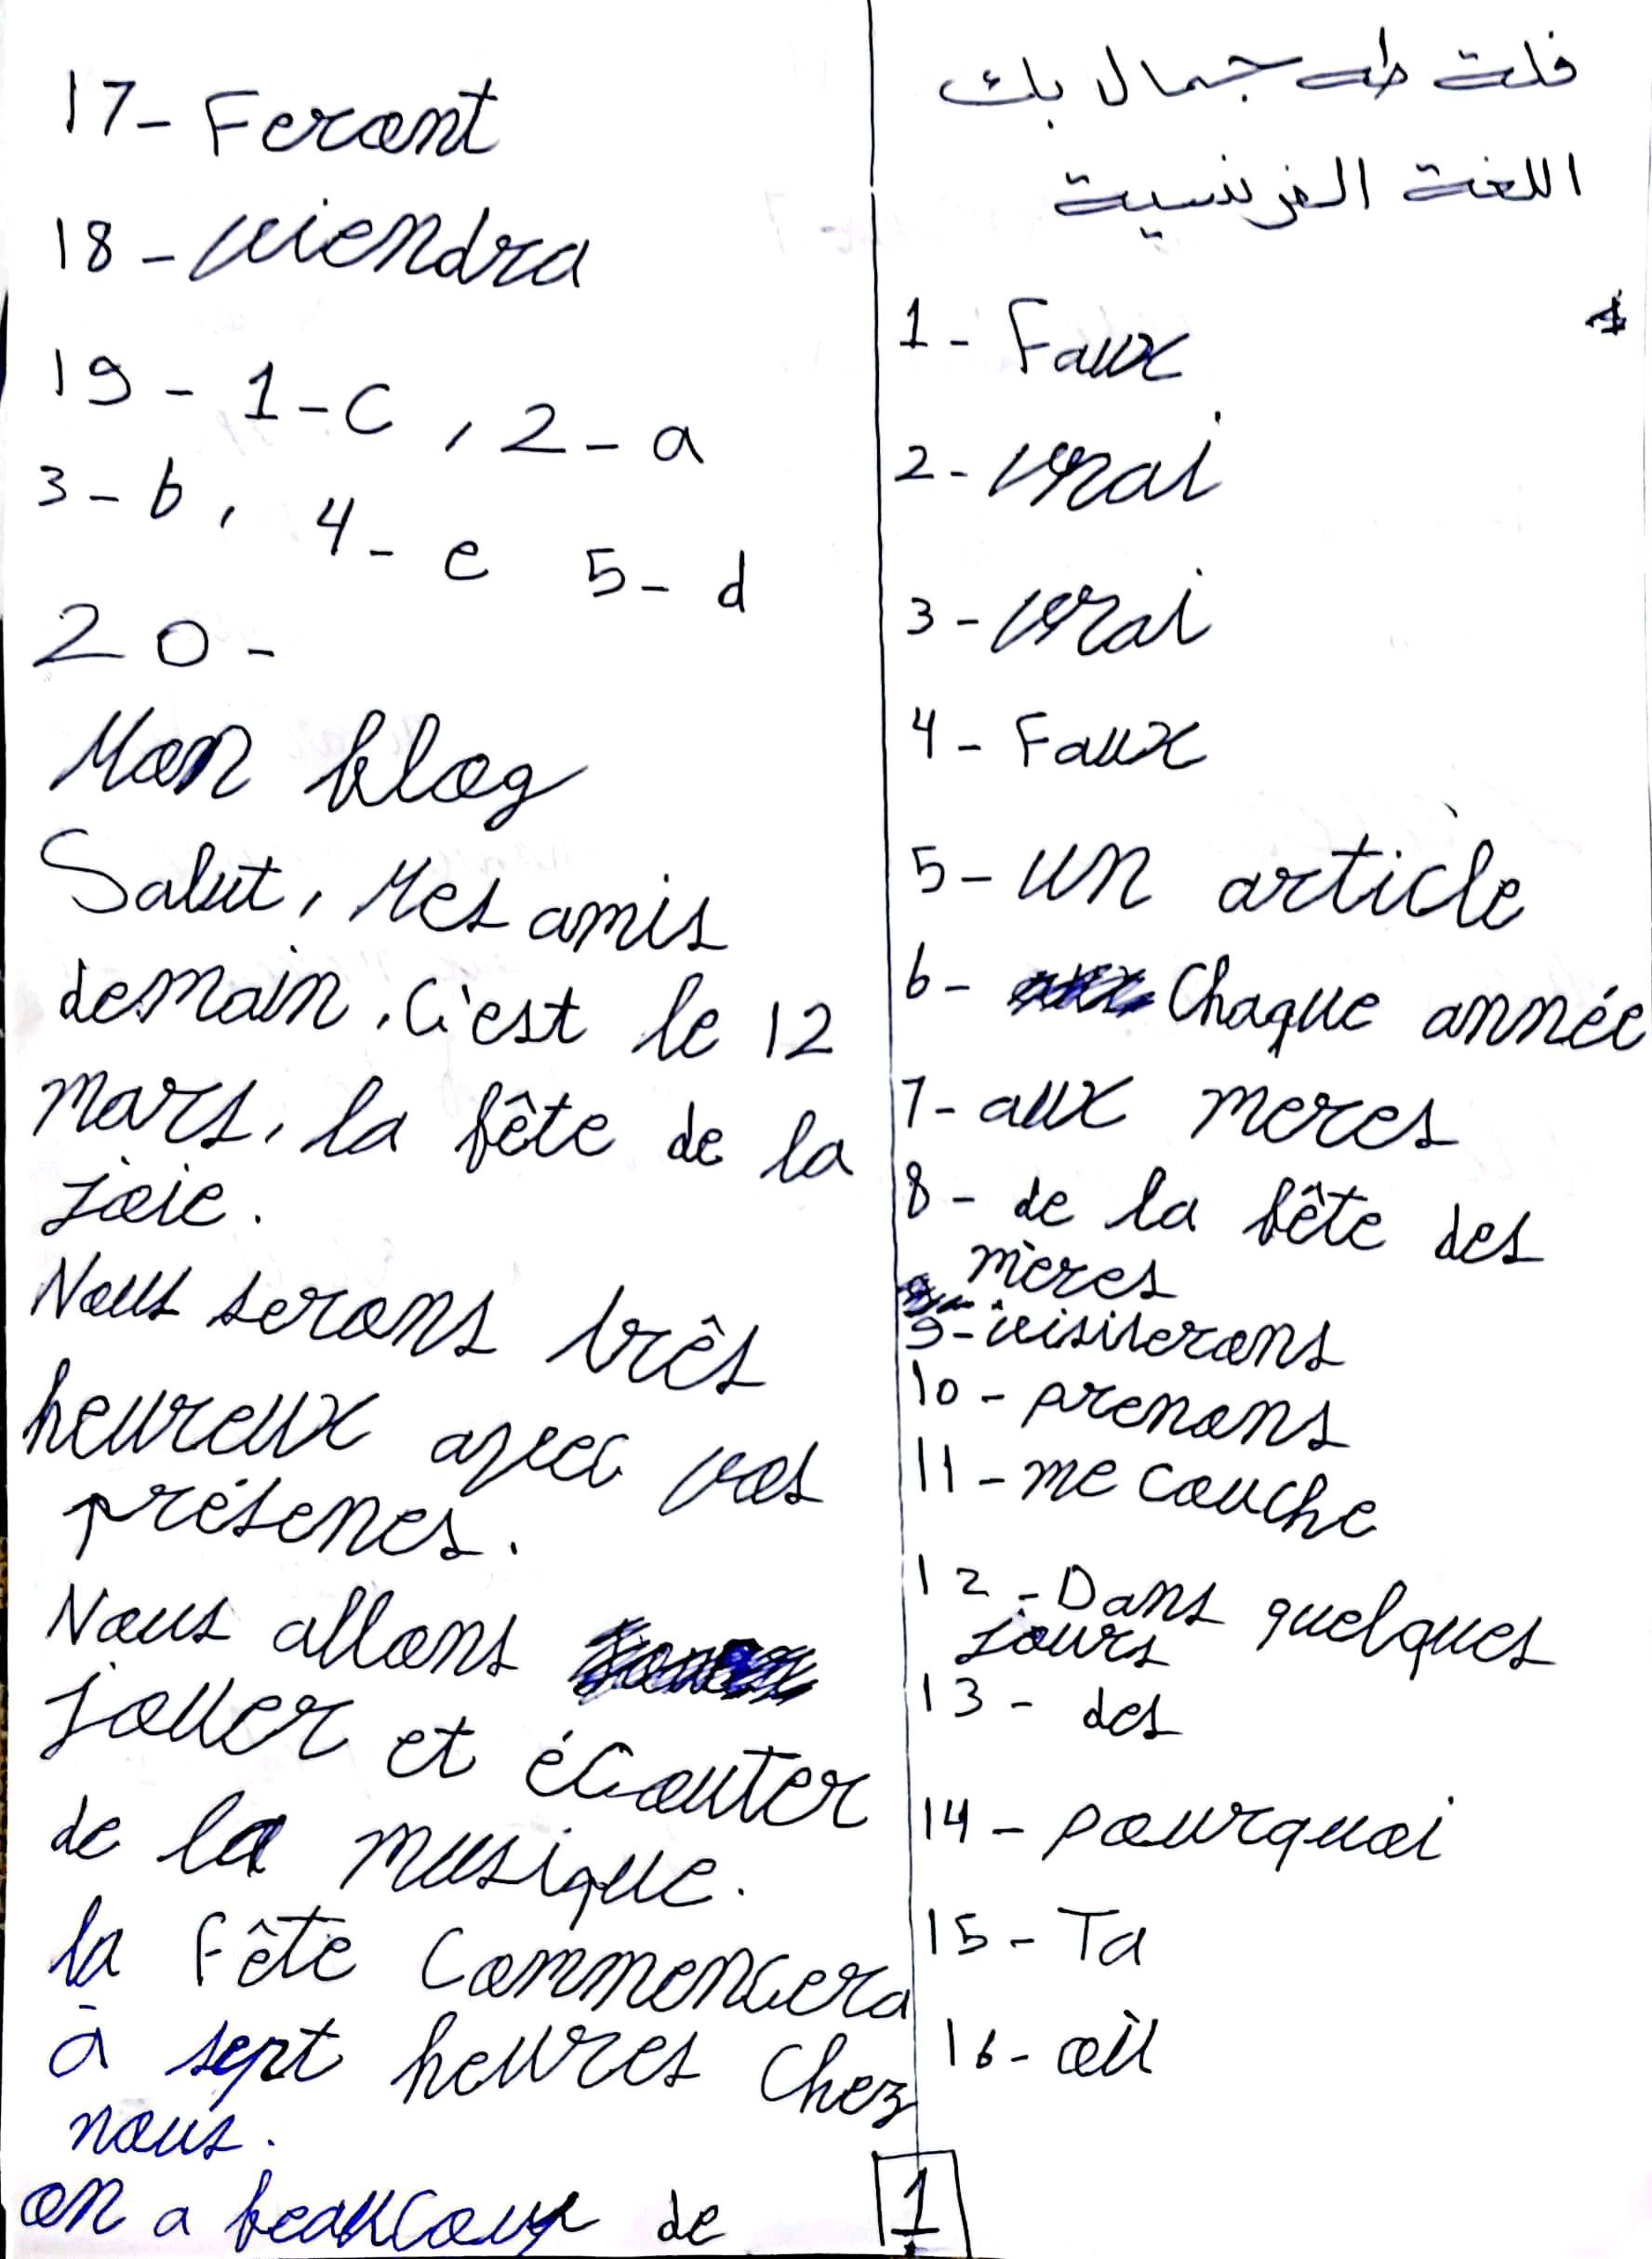 فلك طه جمال بك
اللغة الفرنسية
1
1- Faux
2- vrai
3- vrai
4- Faux
5- un article
6- Chaque année
7- aux meres
8- de la fête des
mères
9- visiterons
10- prenons
11- me couche
12- Dans quelques
jours
13- des
14- pourquoi
15- Ta
16- où
17- Feront
18- viendra
19- 1-C, 2-a
3-b, 4-e 5-d
20-
Mon blog
Salut, Mes amis
demain, C'est le 12
Mars, la fête de la
joie.
Nous serons très
heureux avec vos
présenes.
Nous allons
jouer et écouter
de la musique.
la Fête Commencera
à sept heures Chez
nous.
on a beaucoup de
1